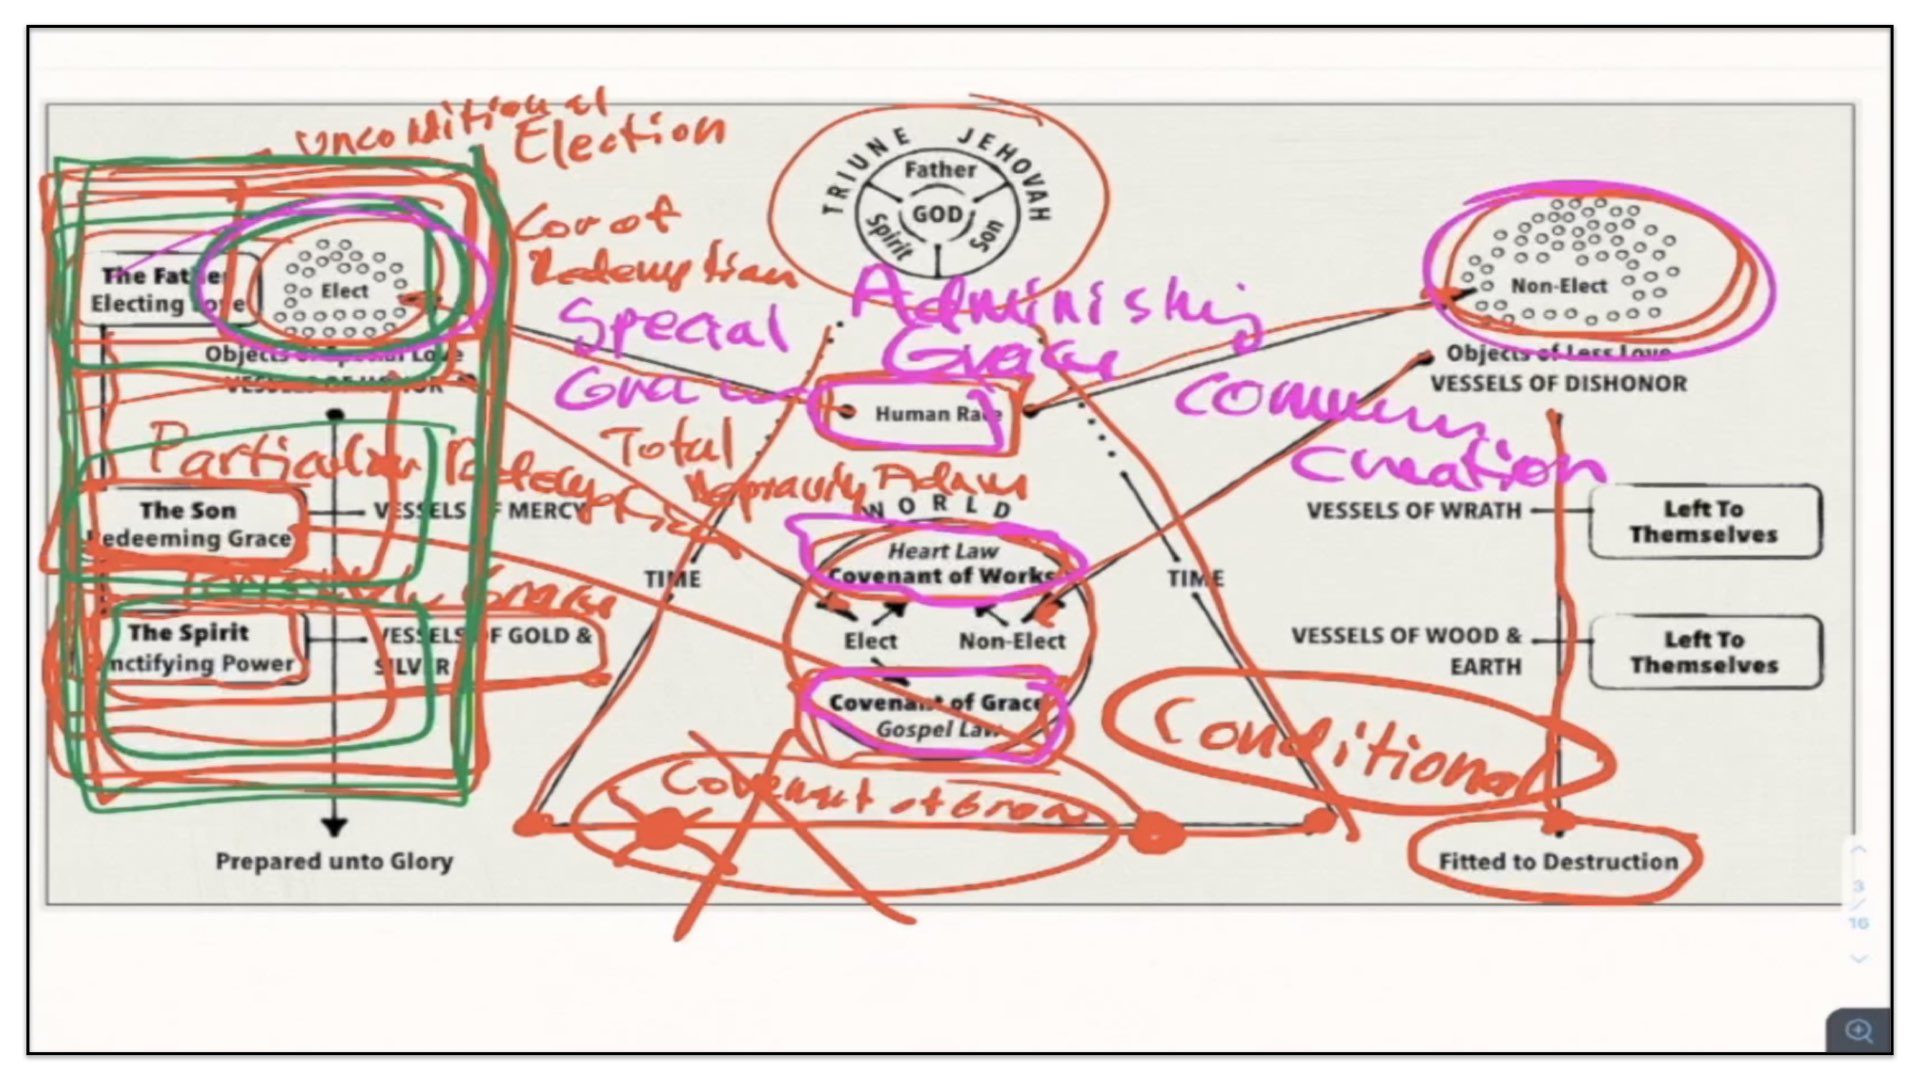 Unconditional
Election
TRIUNE JEHOVAH
Father
GOD
Spirit
Son
Cov of
Redemption
The Father
Electing Love
Elect
Objects of Special Love
VESSELS OF HONOR
Non-Elect
Objects of Less Love
VESSELS OF DISHONOR
Special
Administ
Grace
Human Race
Common
Creation
Particular Redemption
Total
Depravity Adam
WORLD
The Son
Redeeming Grace
VESSELS OF MERCY
Heart Law
Covenant of Works
VESSELS OF WRATH
Left To
Themselves
TIME
TIME
Grace
The Spirit
Sanctifying Power
VESSELS OF GOLD &
SILVER
Elect
Non-Elect
VESSELS OF WOOD &
EARTH
Left To
Themselves
Covenant of Grace
Gospel Law
Conditional
Covenant of Grace
Prepared unto Glory
Fitted to Destruction
3
/
16